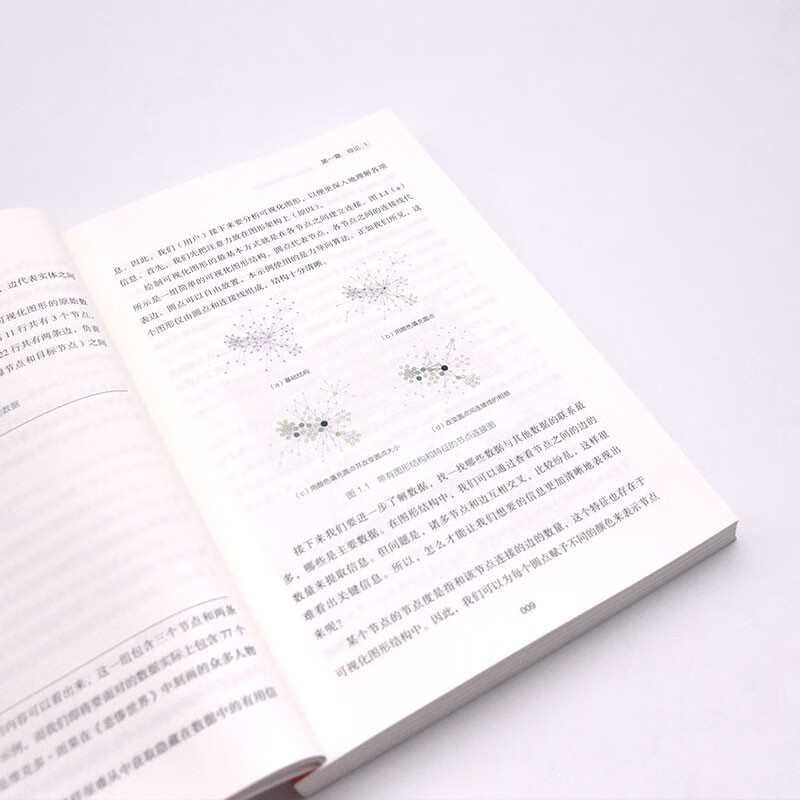 边代表实体之间
可视化图形的原始数
11行共有3个节点，
22行共有两条边，负责
源节点和目标节点）之间
数据
内容可以看出来，这一组包含三个节点和两条
示例，而我们即将要面对的数据实际上包含77个
维克多·雨果在《悲惨世界》中刻画的众多人物
样很难从中获取隐藏在数据中的有用信
第一章 导论
息。因此，我们（用户）接下来要分析可视化图形，以便更深入地理解各项
信息。首先，我们先把注意力放在图形架构上（原因）。
绘制可视化图形的最基本方式就是在各节点之间建立连接。图1.1（a）
所示是一组简单的可视化图形结构，圆点代表节点，各节点之间的连接线代
表边。圆点可以自由放置，本示例使用的是力导向算法。正如我们所见，这
个图形仅由圆点和连接线组成，结构十分清晰。
（a）基础结构
（b）用颜色填充圆点
（c）用颜色填充圆点并改变圆点大小
（d）改变圆点间连接线的粗细
图1.1 带有图形结构和特征的节点连接图
接下来我们要进一步了解数据，找一找哪些数据与其他数据的联系最
多，哪些是主要数据。在图形结构中，我们可以通过查看节点之间的边的
数量来提取信息。但问题是，诸多节点和边互相交叉，比较纷乱，这样很
难看出关键信息。所以，怎么才能让我们想要的信息更加清晰地表现出
来呢？
某个节点的节点度是指和该节点连接的边的数量，这个特征也存在于
可视化图形结构中。因此，我们可以为每个圆点赋予不同的颜色来表示节点
009